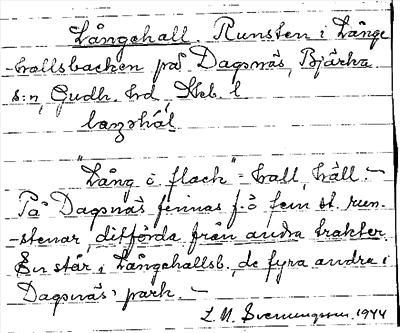 Långehall. Runsten i Långe
-hallsbacken på Dagsnäs, Bjärka
s:n, Gudh. hd, Skb. l

"Lång ö flack" = hall, häll. -
På Dagsnäs finnas f.ö fem st. run-
-stenar, ditförda från andra trakter.
En står i Långehallsb., de fyra andra i
Dagsnäs' park. -
L. M. Svenungsson. 1944